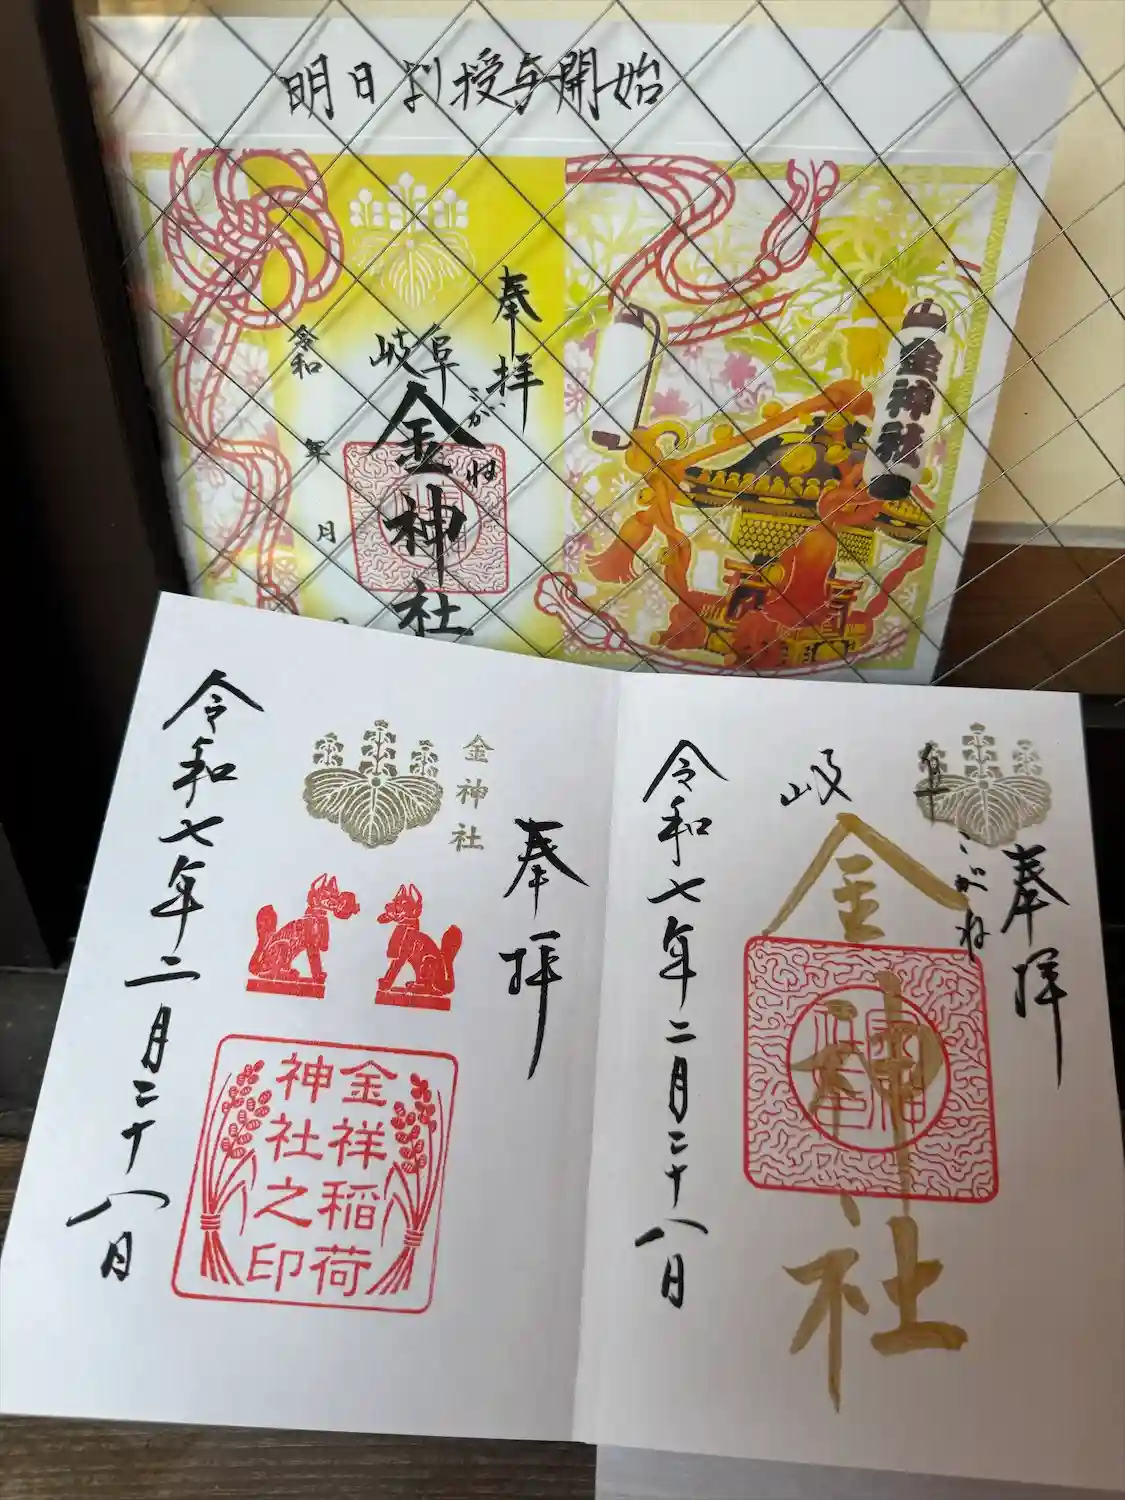 明日より授与開始
奉拝
岐阜
こがね
金神社
令和 年 月
金神社
奉拝
岐阜
こがね
金神社
令和七年二月二十八日
奉拝
金神社
金祥稲荷
神社之印
令和七年二月二十八日